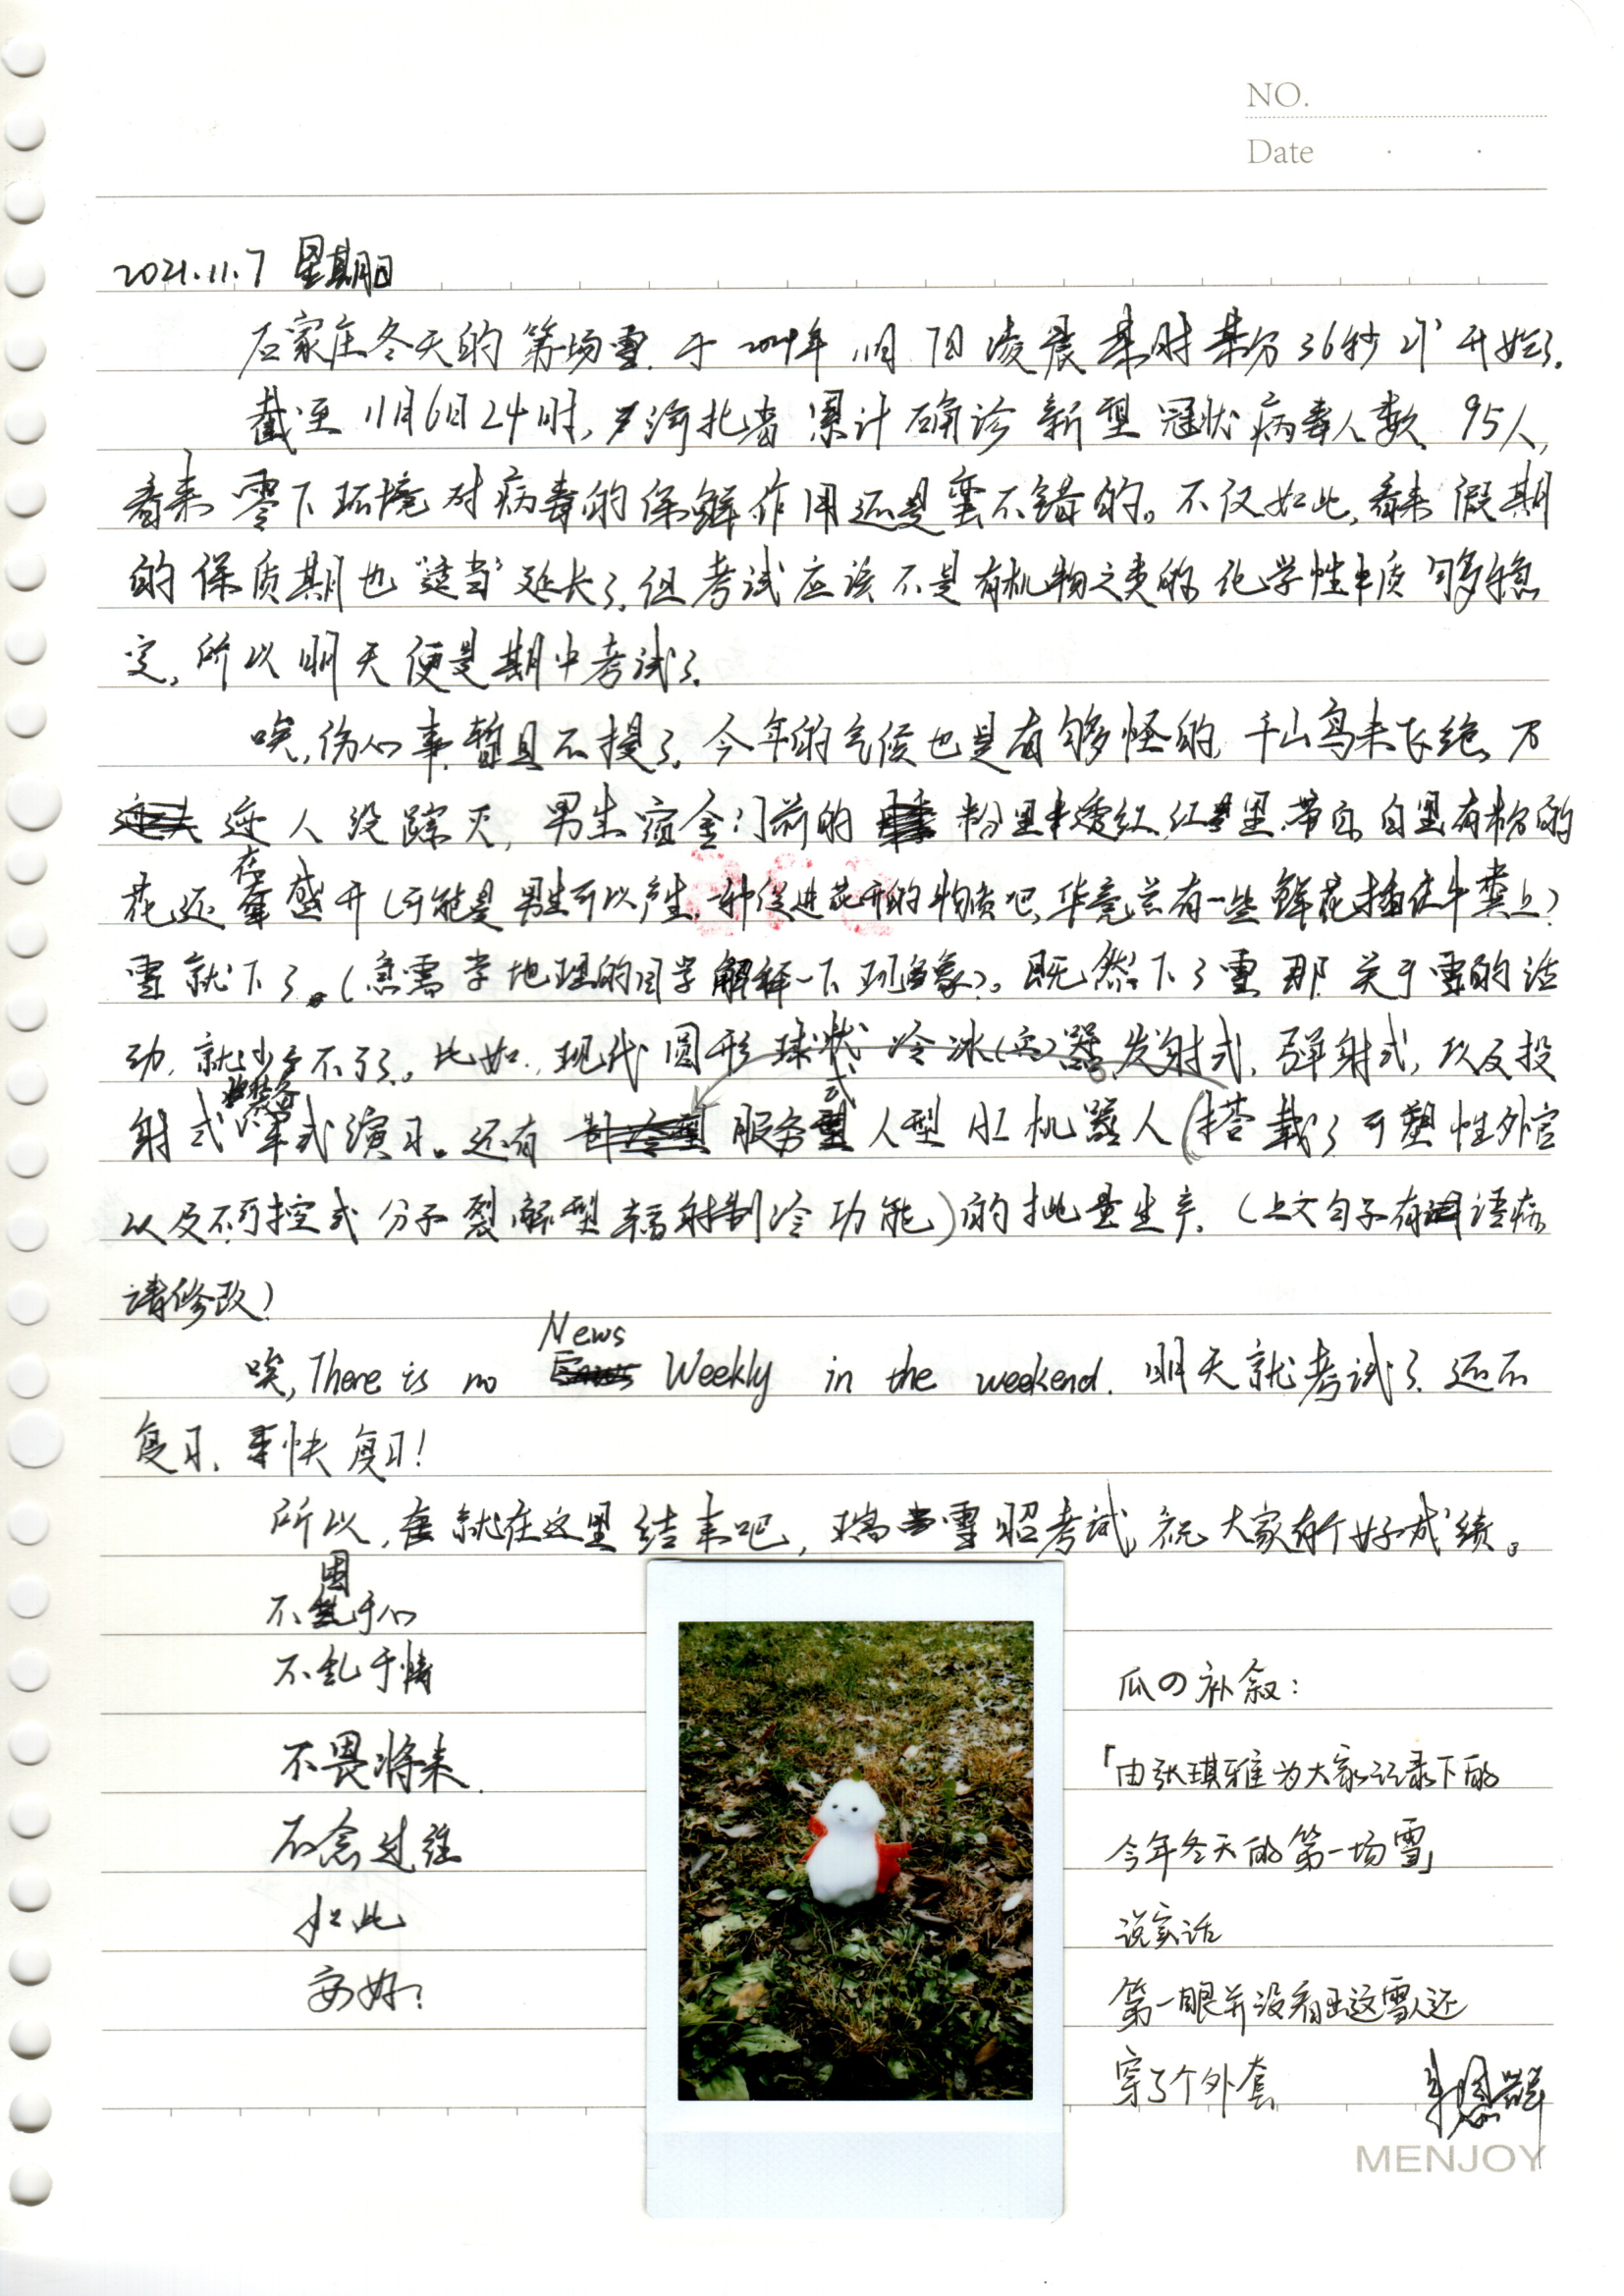 NO.
Date
2021.11.7 星期日
石家庄冬天的第一场雪.于2021年11月7日凌晨某时某分36秒才开始了.
截至11月6日24时,河北省累计确诊新型冠状病毒人数95人,
看来零下环境对病毒的保鲜作用还是蛮不错的。不仅如此,看来假期
的保质期也“适当”延长了.但考试应该不是有机物之类的,化学性质够稳
定,所以明天便是期中考试了.
唉,伤心事暂且不提了.今年的气候也是有够怪的,千山鸟未飞绝,万
迹人没踪灭,男生宿舍门前的粉里透红,红里带白,白里有粉的
花还在盛开(可能是男生可以产生一种促进花开的物质吧,毕竟总有一些鲜花插在牛粪上)
雪就下了。(急需学地理的同学解释一下现象)。既然下了雪,那关于雪的活
动,就少不了了。比如,现代圆形球状冷冰(兵)器发射式,弹射式,以及投
射式军式演习。还有服务式人型机器人(搭载了可塑性外官
以及不可控式分子裂解型辐射制冷功能)的批量生产.(上文句子有语病
请修改)
唉,There is no News Weekly in the weekend.明天就考试了.还不
复习,快复习!
所以,就在这里结束吧,瑞雪照考试,祝大家有个好成绩。
不困于心
不乱于情
不畏将来.
不念过往
如此
安好?
瓜の补叙:
「由张琪雅为大家记录下的
今年冬天的第一场雪」
说实话
第一眼并没看出这雪人还
穿了个外套
MENJOY